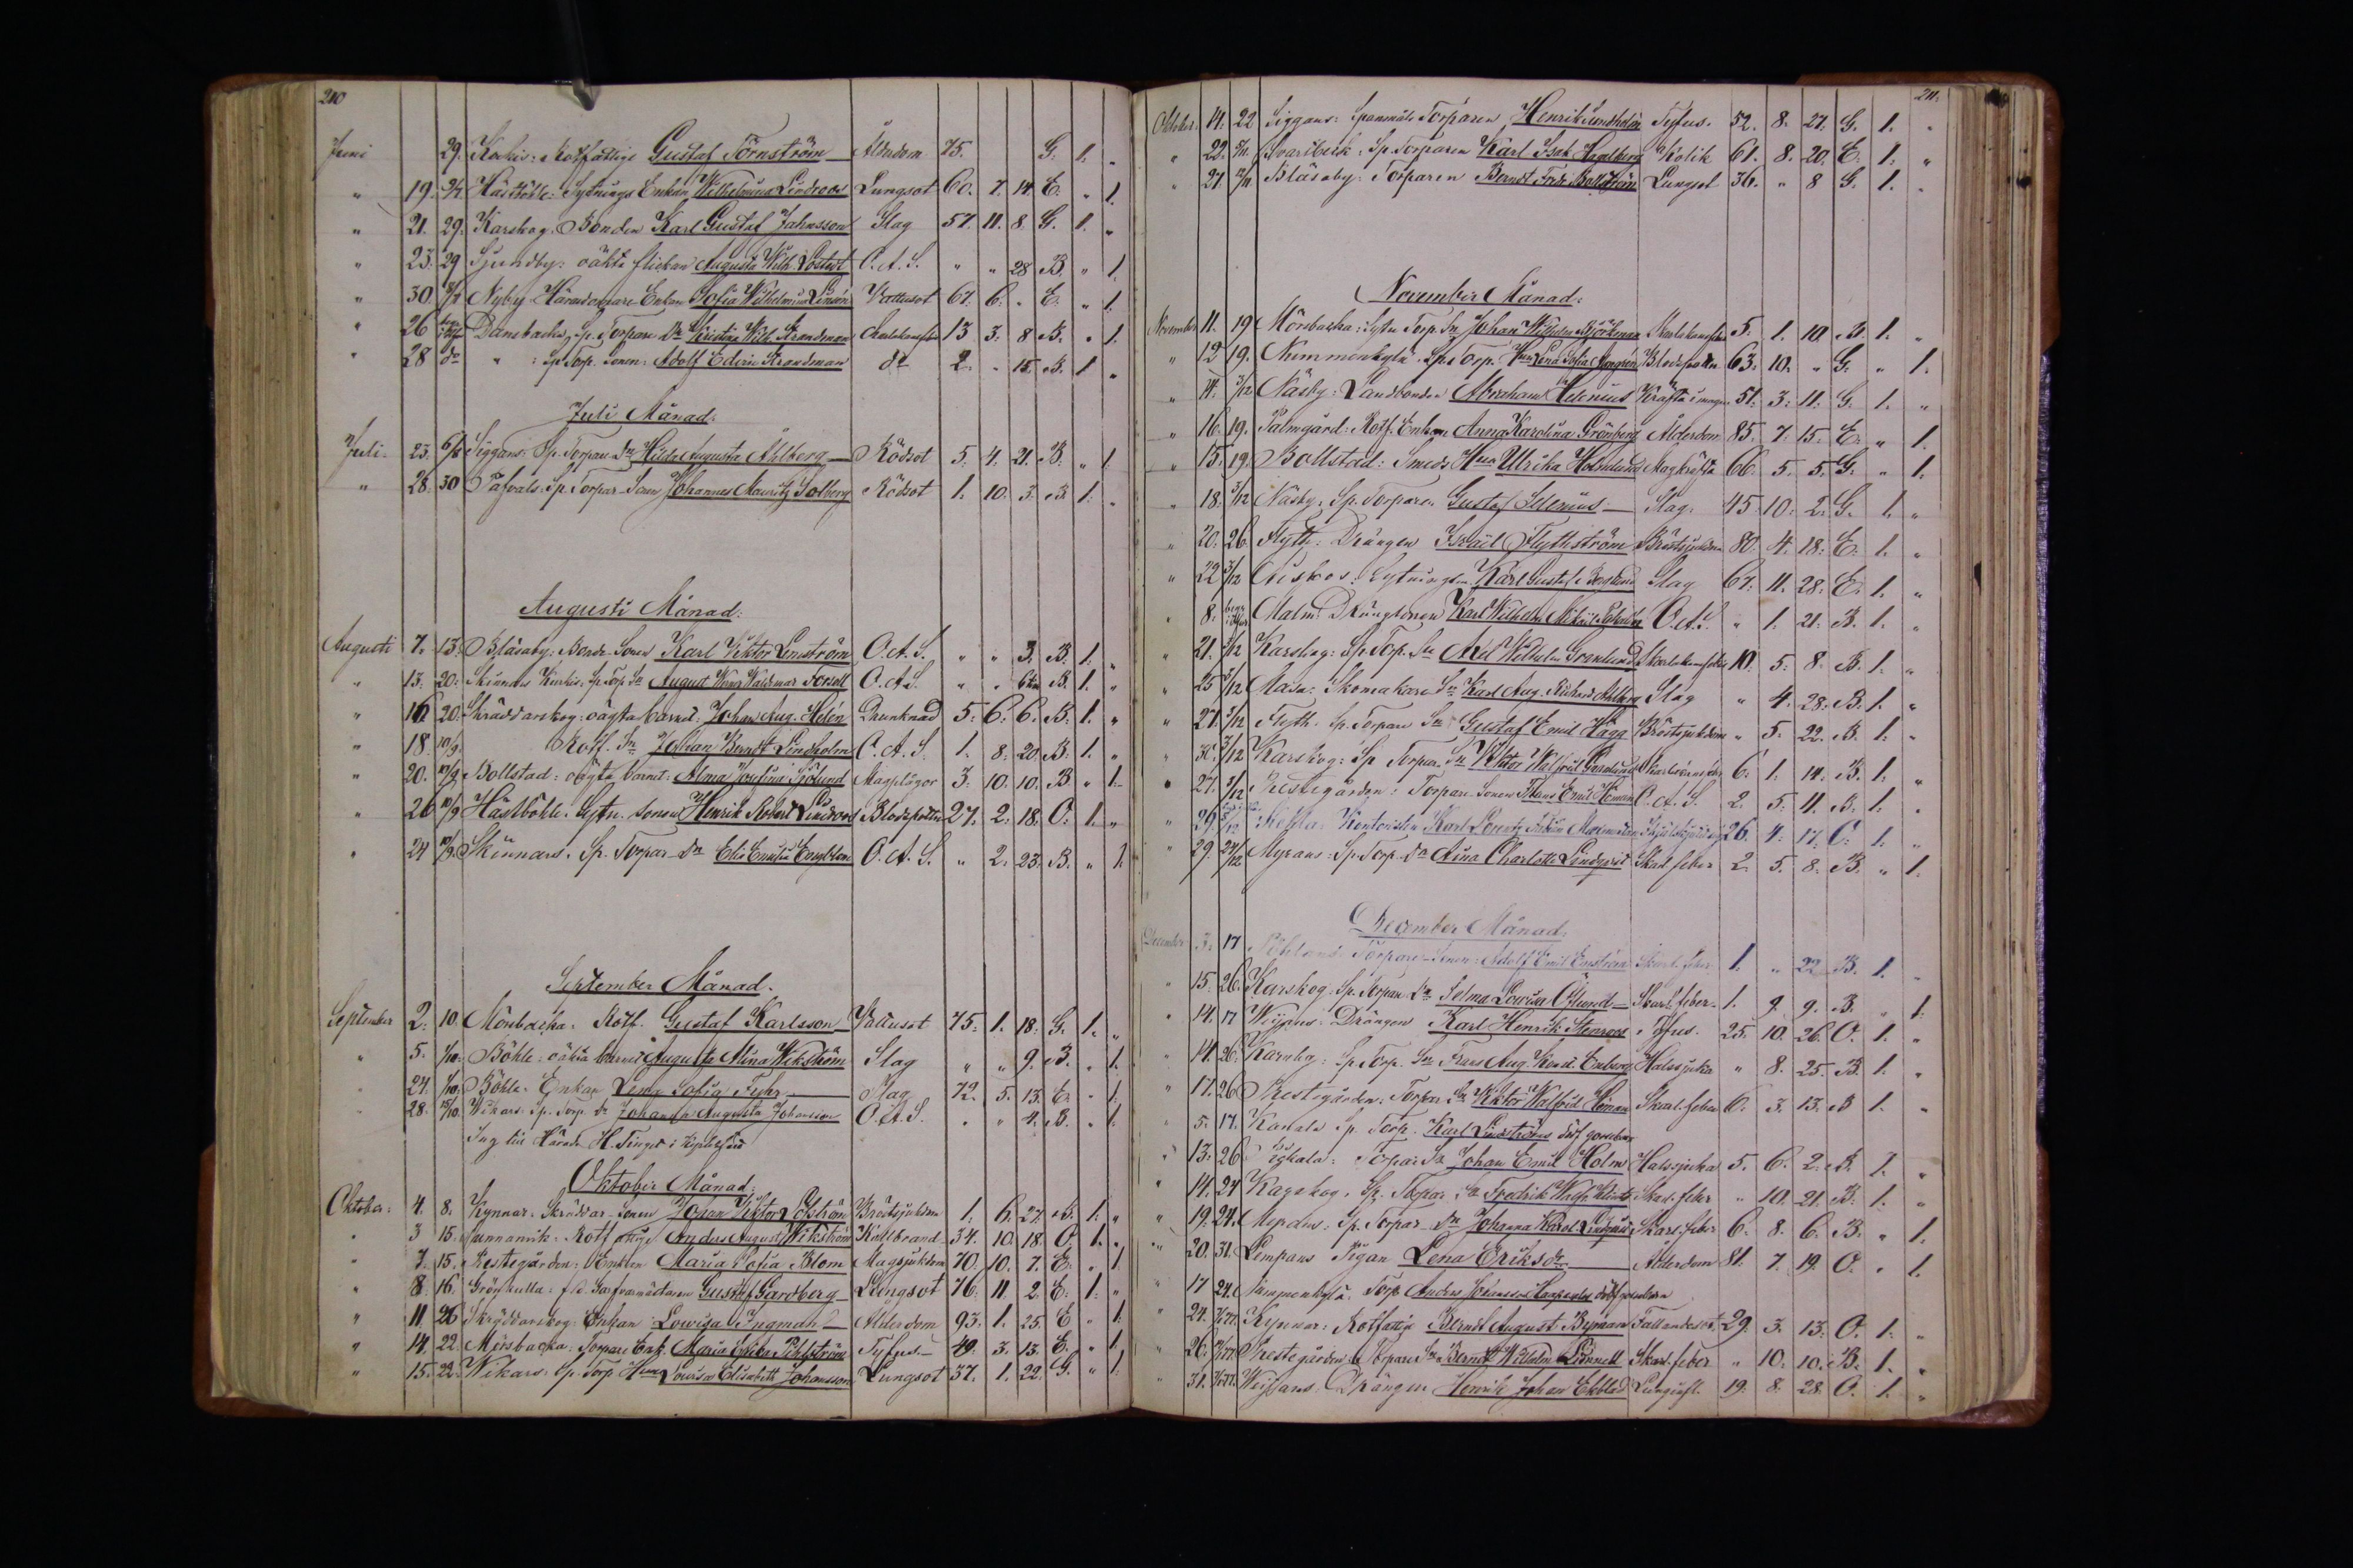 210
Juni 29. Kockis: Rotfattige Gustaf Törnström Ålderdom 75. G. 1. "
" 19. 9/7 Hästböhle: Sytnings Enkan Wilhelmina Lindroos Lungsot 60. 7. 14 E. " 1.
" 21. 29. Karskog. Bonden Karl Gustaf Johnsson Slag 57. 11. 8. G. 1. "
" 23. 29 Sjundby: oäkta flickan Augusta Wilh. O.A.S. " " 28 B. " 1.
" 30. Nyby Enkan Sofia Wilhelmina Linsén Vattusot 67. 6. " E. " 1.
" 26 Dansbacka, Sp. Torpare Dr Kristina Wilh. Strandman Skarlakansfeber 13 3. 8 B. " 1.
" 28 do " : Sp Torp. Sonen: Adolf Edvin Strandman do 2. " 15. B. 1 "
Juli Månad:
Juli. 23. 6/8 Siggans: Sp. Torpare Dr Hilda Augusta Ahlberg Rödsot 5. 4. 21. B. " 1
" 28. 30 Påfvals: Sp Torpar Sonen Johannes Mauritz Solberg Rödsot 1. 10. 3. B 1. "
Augusti Månad:
Augusti 7. 13. Bläsaby: Bonde Sonen Karl Viktor Lindström O.A.S. " " 3. B. 1. "
" 13. 20: Skinnars Kockis, Sp Torp. Sn August Waldemar Forsell O.A.S. " " B. 1. "
" 16 20. Skräddarskog: oägta barnet: Johan Aug. Helén Drunknad 5. 6. 6. B. 1. "
" 18. 10/9. Rotf. Sn Johan Berndt Lindholm O.A.S. 1. 8. 20. B. 1. "
" 20. 10/9 Bollstad: oägta barnet: Alma Josefina Sjölund Magplågor 3. 10. 10. B " 1.
" 26 10/9 Hästböhle. Sytn. sonen Henrik Robert Lindroos Blodspottn. 27. 2. 18. O. 1. "
" 24 10/9. Skinnars. Sp. Torpar-Dr Elis Emilia Engblom O.A.S. " 2. 23. B. " 1.
September Månad.
September 2. 10. Mörsbacka. Rotf. Gustaf Karlsson Vattusot 75. 1. 18. G. 1. "
" 5. 1/10. Böhle: oäkta barnet Augusta Alina Wikström Slag " " 9. B. " 1.
" 24. 1/10. Böhle. Enkan Lena Sofia Fehr Slag 72. 5. 13. E. " 1.
" 28. 15/10. Wikars. Sp. Torp. Dr Johanna Augusta Johansson O.A.S. " " 4. B. " 1.
Oktober Månad:
Oktober. 4. 8. Kynnar. Skräddar-Sonen Johan Viktor Löfström Bröstsjukdom 1. 6. 27. B. 1. "
" 3 15. Sunnanvik. Rotfattige Anders August Wikström Kallbrand 34. 10. 18. O. 1. "
" 7. 15. Prestegården: Enkan Maria Sofia Blom Magsjukdom 70. 10. 7. E. " 1.
" 8. 16. Grönkulla: f.d. Garfvaremästaren Gustaf Gardberg Lungsot 76. 11. 2. E. 1. "
" 11. 26 Skräddarskog: Enkan Lowisa Ingman Ålderdom 93. 1. 25. E " 1.
" 14. 22. Mörsbacka: Torpare Enk. Maria Pihlström Tyfus 49. 3. 13. E. " 1.
" 15. 22. Wikars. Sp. Torp. Hun Lovisa Elisabeth Johansson Lungsot 37. 1. 22. G. " 1.
211.
Oktober. 14. 22 Siggans: Spanmåls Torparen Henrik Sundholm Tyfus. 52. 8. 27. G. 1. "
" 22. 5/11. Svartbäck. Sp. Torparen Karl Isak Hagelberg Kolik 61. 8. 20. E. 1. "
" 27. 12/11 Bläsaby: Torparen Berndt Fredr. Lungsot 36. " 8 G. 1. "
November Månad:
November 11. 19 Mörsbacka: Sytn Torp. Sn Johan Wilhelm Björkman Skarlakansfeber 5. 1. 10. B. 1. "
" 12 19. Nummenkylä. Sp. Torp. Hun Lena Sofia Blodspottn. 63. 10. " G. " 1.
" 14. 3/12 Näsby: Landbonden Abraham Helenius Kräfta i magen 51. 3. 11. G. 1. "
" 16. 19. Palmgård: Rotf. Enkan Anna Karolina Grönberg Ålderdom 85. 7. 15. E. " 1.
" 15. 19. Bollstad: Smeds Hun Ulrika Holmlund Magkräfta 66. 5. 5. G. " 1.
" 18. 3/12 Näsby. Sp. Torparen Gustaf Selenius Slag. 45. 10. 2. G. 1. "
" 20. 26. Flyth: Drängen Israel Flythström Bröstsjukdom 80. 4. 18. E. 1. "
" 22 3/12 Sytningsm. Karl Gustaf Slag 67. 11. 28. E. 1. "
" 8. Malm: Drängsonen Karl Wilhelm O.A.S. " 1. 21. B. 1. "
" 21. 3/12 Karskog: Sp. Torp. Sn Axel Wilhelm Grenlund Skarlakansfeber 10. 5. 8. B. 1. "
" 25 3/12 Skomakare Sn Karl Aug. Richard Ahlberg Slag " 4. 28. B. 1. "
" 27. 3/12 Flyth. Sp. Torpare Sn Gustaf Emil Hägg Bröstsjukdom " 5. 22. B. 1. "
" 30. 3/12 Karskog: Sp Torpar. Sn Viktor Walfrid Skarlakansfeber 6. 1. 14. B. 1. "
" 27. 3/12 Prestegården: Torpare-Sonen Frans Emil Höman O.A.S. 2. 5. 11. B. 1. "
" 26. Kontoristen Karl Lorentz 26. 4. 17. O. 1. "
" 29. 27/12 Myrans: Sp. Torp. Dr Aina Charlotta Lindqvist Skarl. feber 2. 5. 8. B. " 1.
December Månad.
December 3. 17 Torpare-Sonen: Adolf Emil Enström Skarl. feber 1. " 22 B. 1. "
" 15. 26. Karskog: Sp. Torpar Dr Selma Lowisa Öhlund Skarl. feber. 1. 9. 9. B. " 1.
" 14. 17 Drängen Karl Henrik Stenroos Tyfus. 25. 10. 26. O. 1. "
" 14. 26. Sp Torp. Sn Frans Aug. Konr. Enberg Halssjuka " 8. 25. B. 1. "
" 17. 26 Prestegården. Torpar Sn Viktor Walfrid Höman Skarl. feber 6. 3. 13. B 1. "
" 5. 17. Kanala Sp. Torp. Karl Lindströms dödf. gossebarn
" 13. 26 Torpar Sn Johan Emil Holm Halssjuka 5. 6. 2. B. 1. "
" 14. 24 Kagskog. Sp. Torpar Sn Fredrik Skarl. feber " 10. 21. B. 1. "
" 19. 24. Sp. Torpar-Dr Johanna Karol. Lindqvist Skarl. feber 6. 8. 6. B. " 1.
" 20. 31. Lempans Pigan Lena Eriksdr Ålderdom 81. 7. 19. O. " 1.
" 17 24. Nummenkylä. Torp. Anders Johansson dödf. gossebarn
" 24. Kynnar: Rotfattige Berndt August Byman Fallandesot 29. 3. 13. O. 1. "
" 26. Prestegården Torpares Sn Berndt Wilhelm Linnell Skarl. feber " 10. 10. B. 1. "
" 31. Drängen Henrik Johan Ekblad 19. 8. 28. O. 1. "